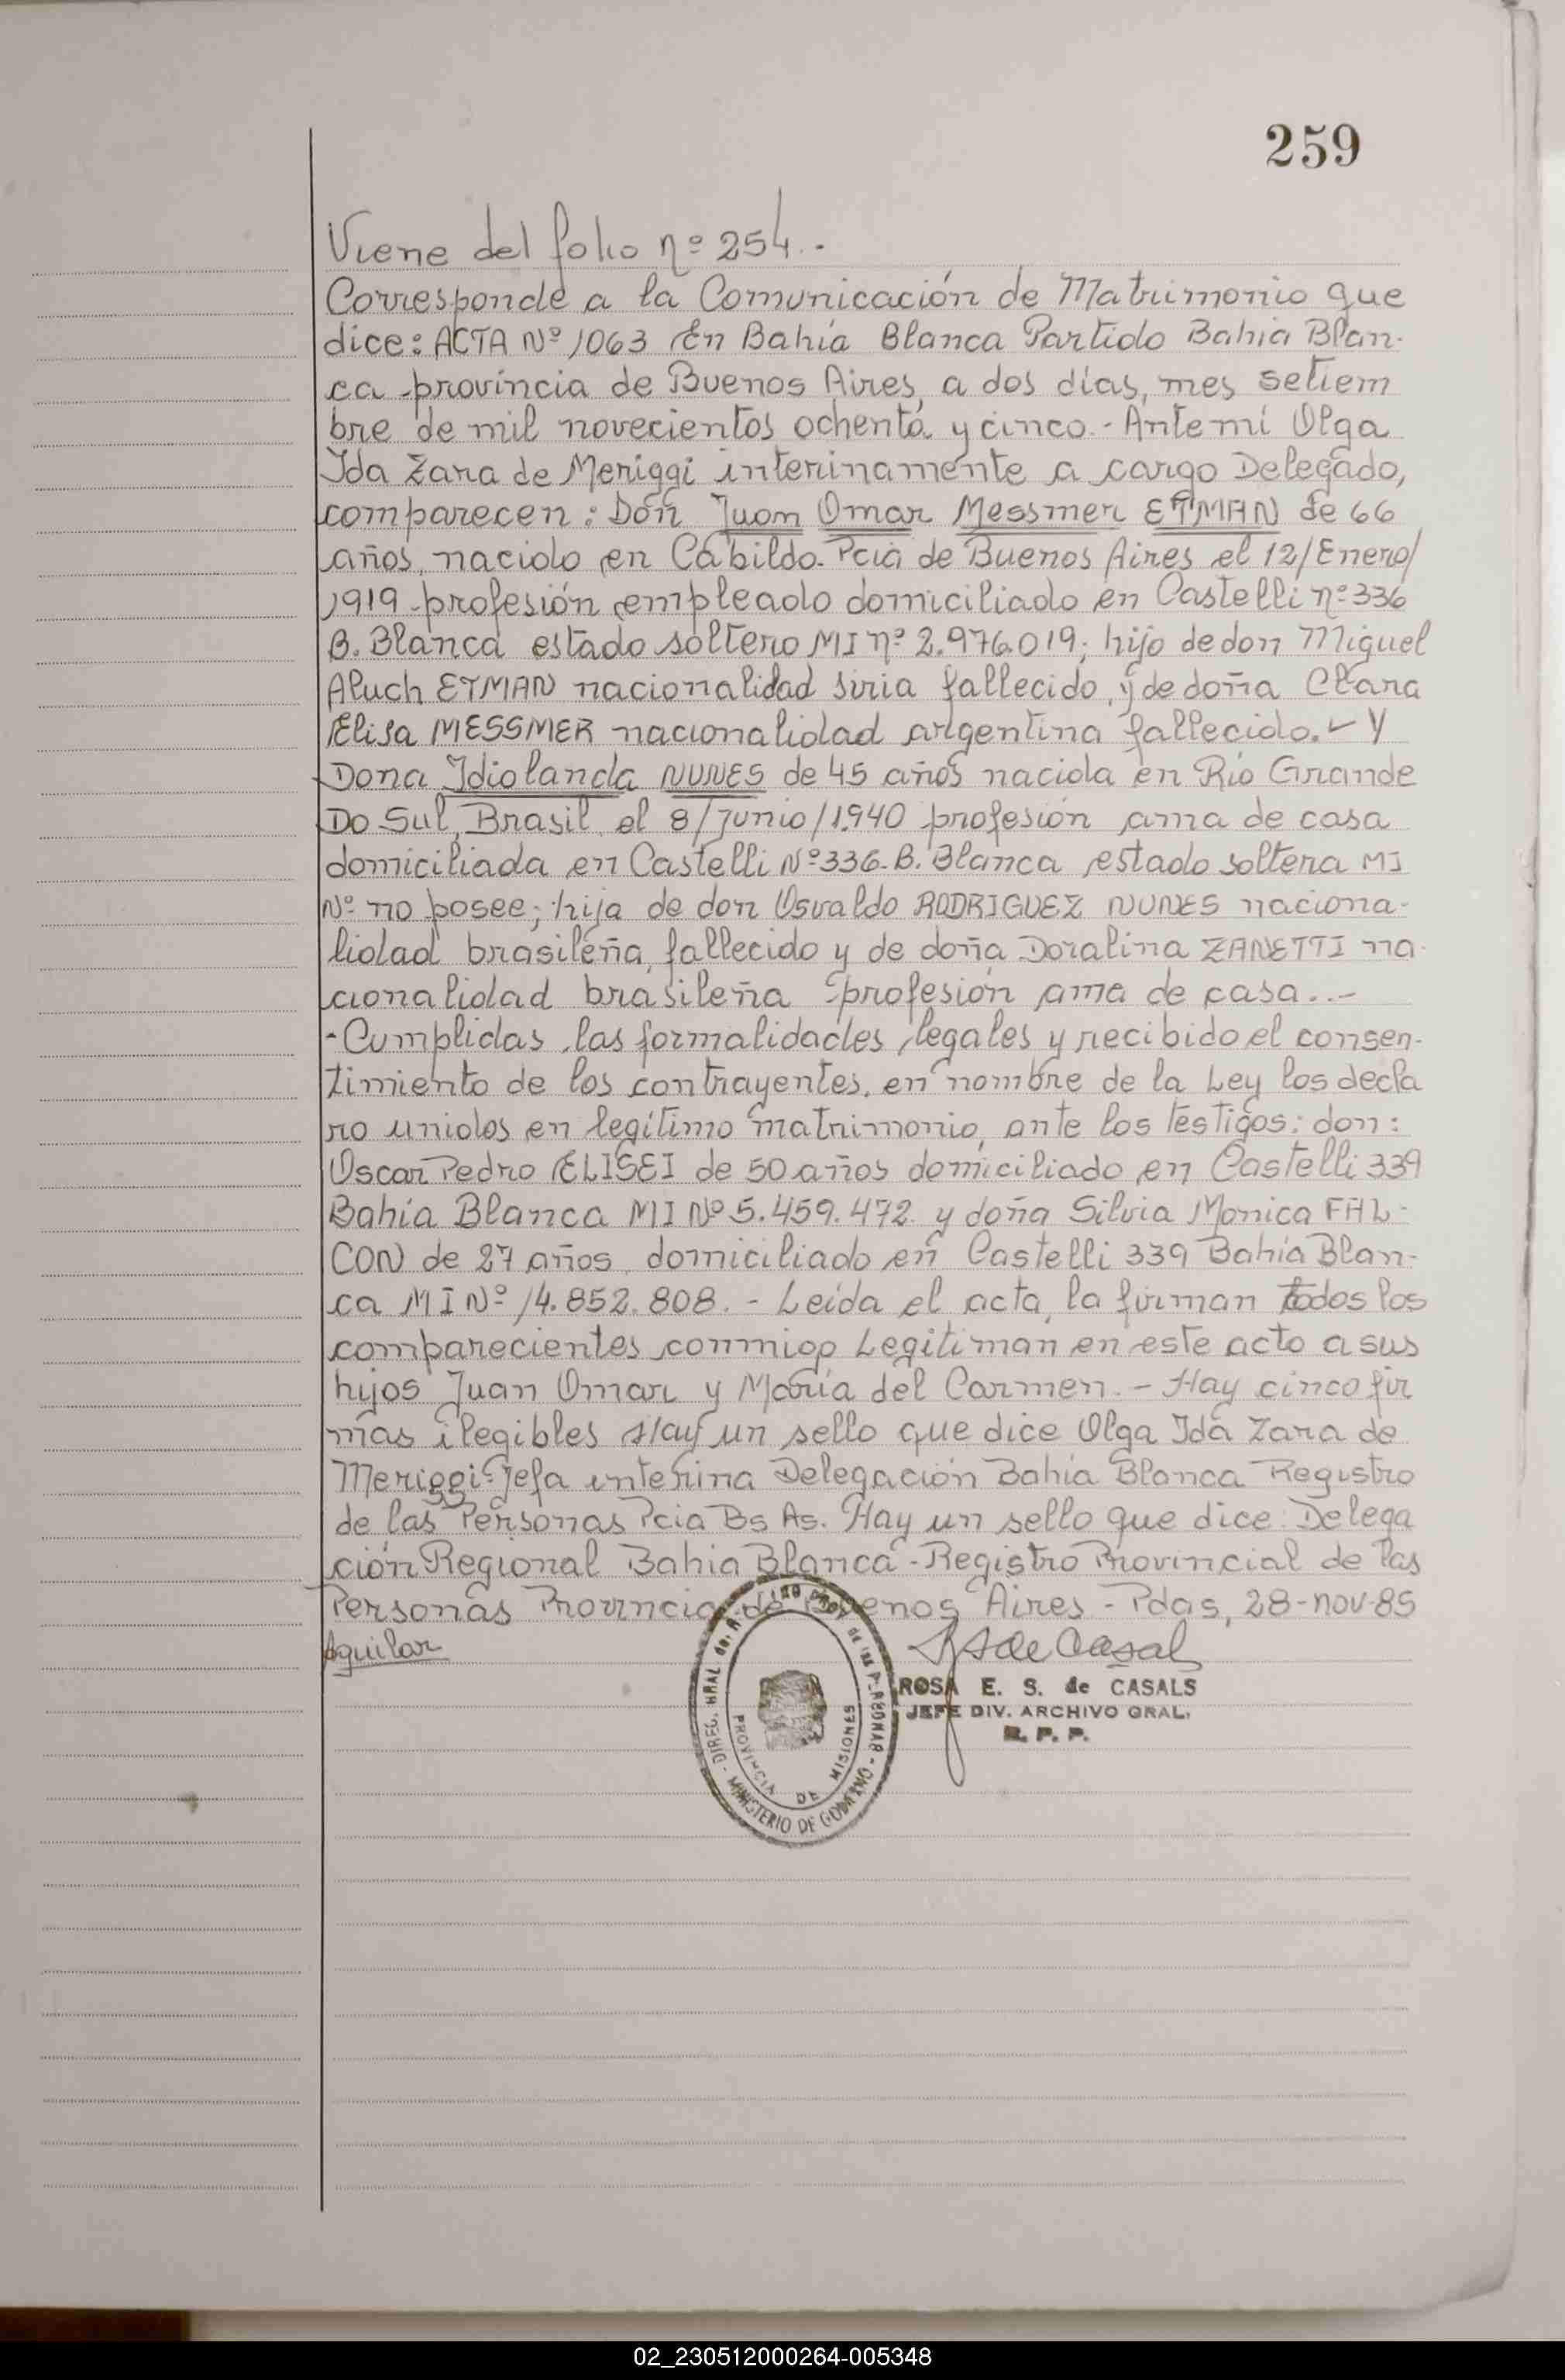 259
Viene del folio nº 254.-
Corresponde a la Comunicación de Matrimonio que
dice: ACTA Nº 1063 En Bahía Blanca Partido Bahia Blan-
ca provincia de Buenos Aires, a dos días, mes setiem
bre de mil novecientos ochenta y cinco.- Ante mí Olga
Ida Zara de Meriggi interinamente a cargo Delegado,
comparecen: Don Juan Omar Messmer ETMAN de 66
años, nacido en Cabildo. Pcia de Buenos Aires el 12/Enero/
1919 profesión empleado domiciliado en Castelli nº 336
B. Blanca estado soltero MI nº 2.976.019; hijo de don Miguel
Aluch ETMAN nacionalidad siria fallecido, y de doña Clara
Elisa MESSMER nacionalidad argentina fallecido. - Y
Dona Idiolanda NUNES de 45 años nacida en Río Grande
Do Sul, Brasil, el 8/Junio/1.940 profesión ama de casa
domiciliada en Castelli Nº 336-B. Blanca estado soltera MI
Nº no posee; hija de don Osvaldo RODRIGUEZ NUNES naciona-
lidad brasileña, fallecido y de doña Doralina ZANETTI na-
cionalidad brasileña profesión ama de casa..-
-Cumplidas las formalidades legales y recibido el consen-
timiento de los contrayentes, en nombre de la Ley los decla
ro unidos en legítimo matrimonio, ante los testigos: don:
Oscar Pedro ELISEI de 50 años domiciliado en Castelli 339
Bahía Blanca MI Nº 5.459.472 y doña Silvia Monica FAL-
CON de 27 años domiciliado en Castelli 339 Bahía Blan-
ca MI Nº 14.852.808. - Leída el acta, la firman todos los
comparecientes conmigo Legitiman en este acto a sus
hijos Juan Omar y María del Carmen. - Hay cinco fir
mas ilegibles Hay un sello que dice Olga Ida Zara de
Meriggi-Jefa interina Delegación Bahía Blanca Registro
de las Personas Pcia Bs As. Hay un sello que dice: Delega
ción Regional Bahia Blanca - Registro Provincial de las
Personas Provincia de Buenos Aires - Pdas, 28-nov-85
Aguilar
ROSA E. S. de CASALS
JEFE DIV. ARCHIVO GRAL.
R. P. P.
PROVINCIA DE MISIONES
MINISTERIO DE GOBIERNO
02_230512000264-005348